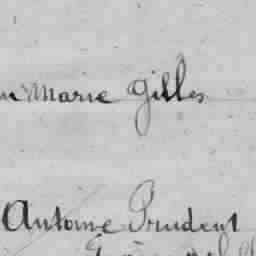 Marie Gilles
Antoine Prudent